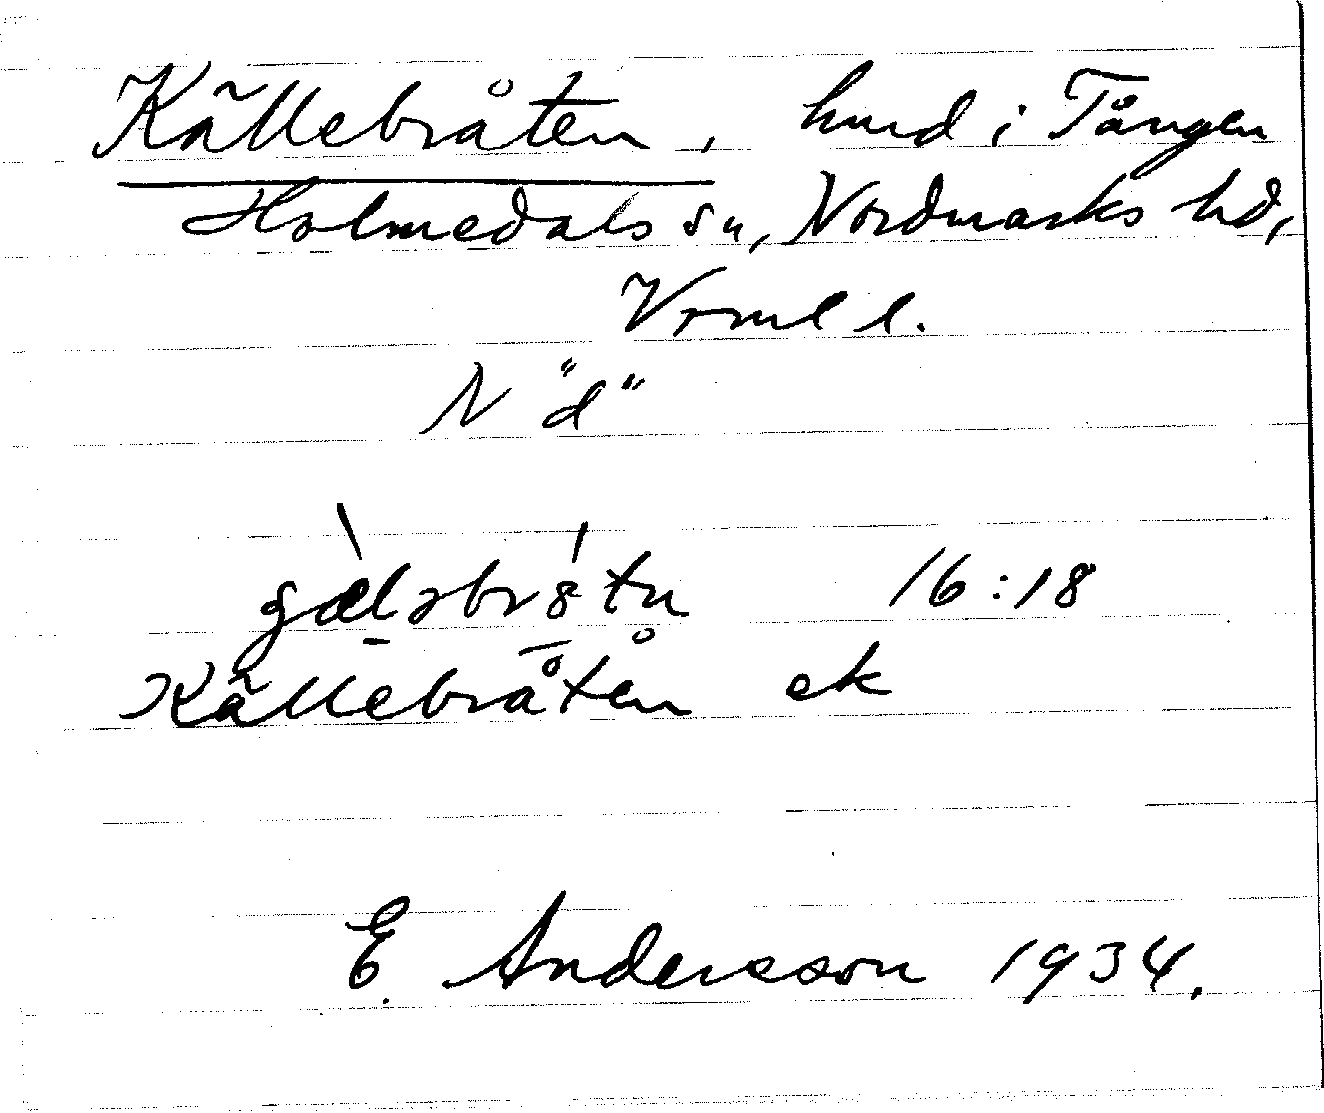 Källebråten, hmd i Tången
Holmedals sn, Nordmarks hd,
Vrml l.
N "d"
16:18
Källebråten ek
E. Andersson 1934.